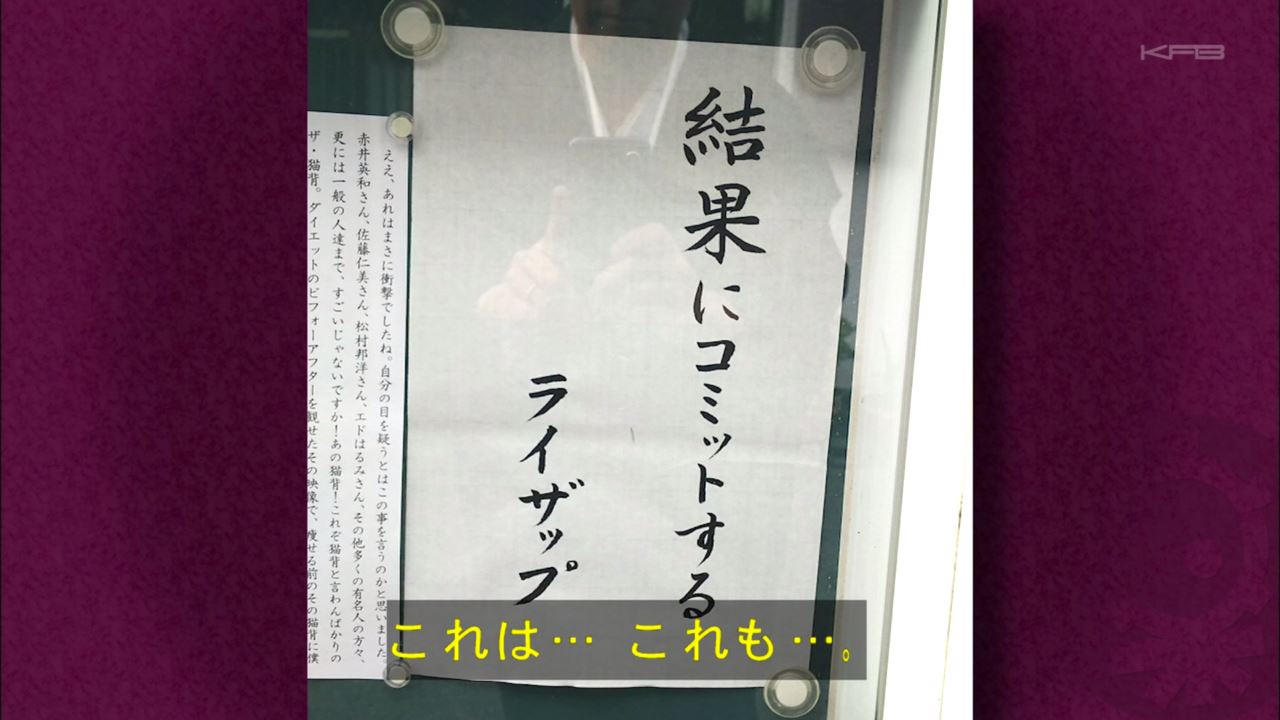 KFB
結果にコミットする
ライザップ
ええ、あれはまさに衝撃でしたね。自分の目を疑うとはこの事を言うのかと思いました。
赤井英和さん、佐藤仁美さん、松村邦洋さん、エドはるみさん、その他多くの有名人の方々、
更には一般の人達まで、すごいじゃないですか!あの猫背!これぞ猫背と言わんばかりの
ザ・猫背。ダイエットのビフォーアフターを観せたその映像で、痩せる前のその猫背に僕
これは… これも…。